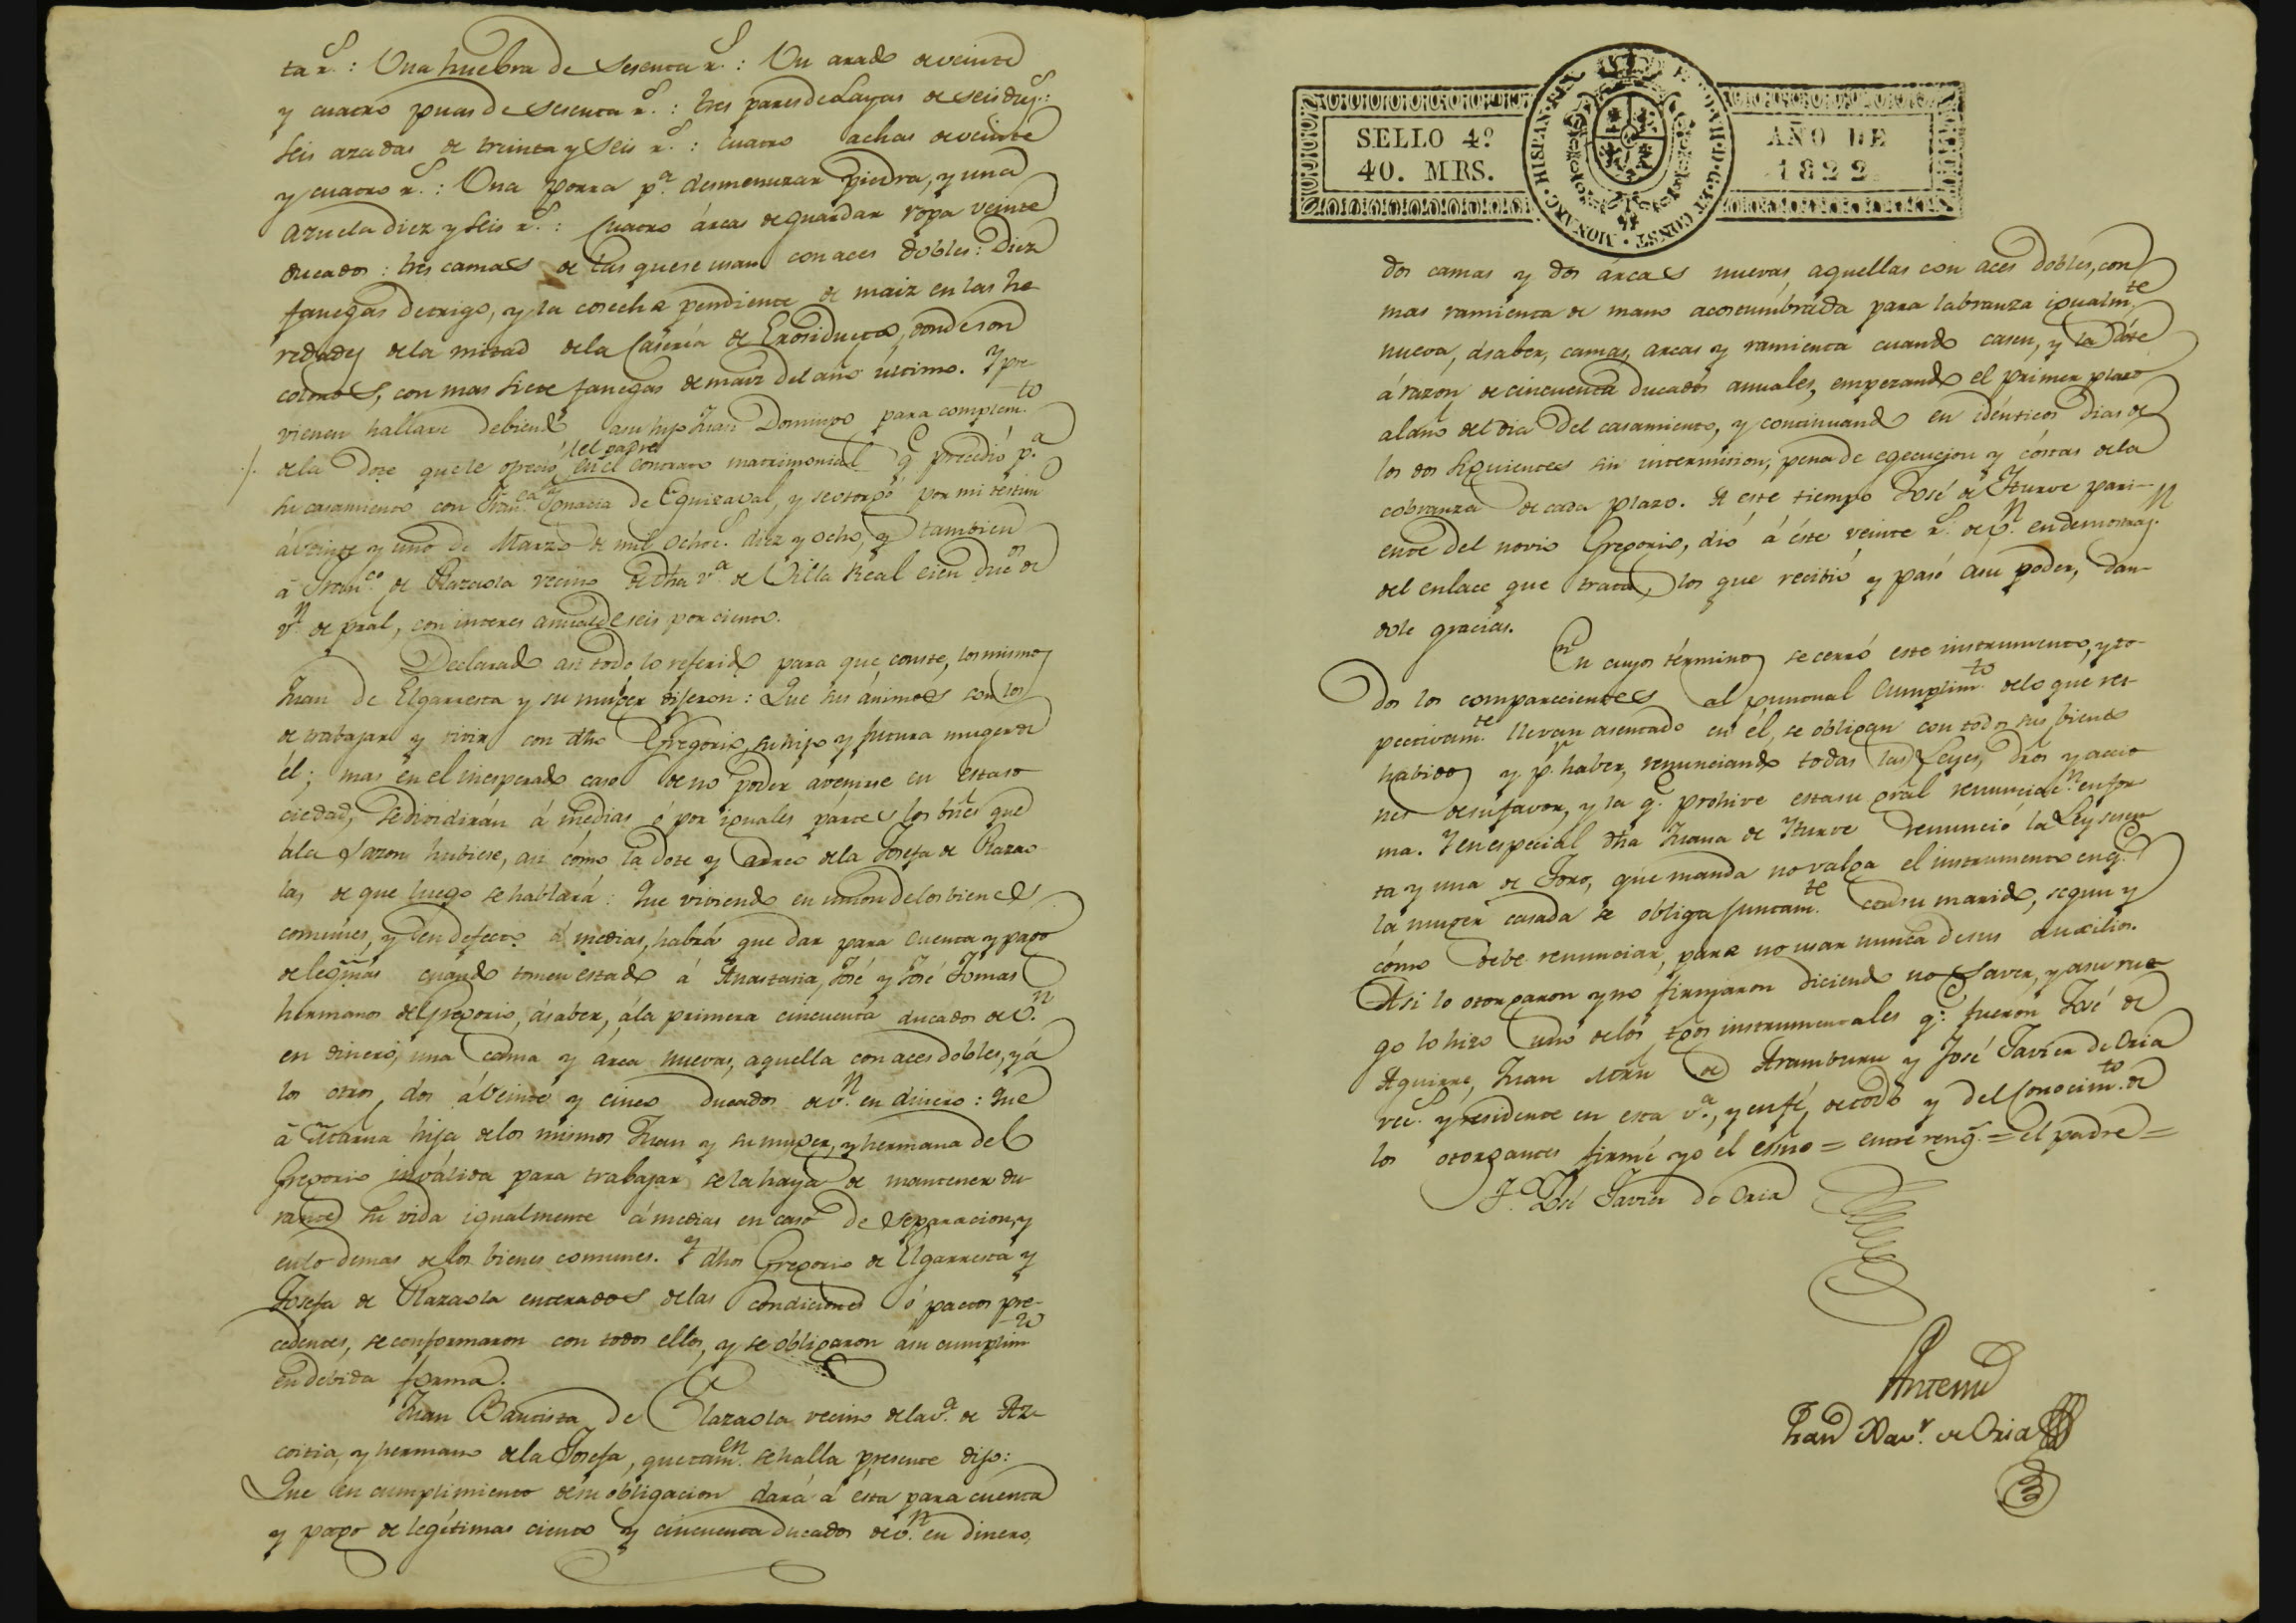 ta r.s : Una huebra de sesenta r.s : Un arado de veinte
y cuatro puas de sesenta r.s : tres pares de Layas de seis duc.s :
seis azadas de treinta y seis r.s : cuatro achas de veinte
y cuatro r.s : Una porra p.a desmenuzar piedra, y una
azuela diez y seis r.s : Cuatro árcas de guardar ropa veinte
ducados : tres camas de las que se usan con aces dobles : Diez
fanegas de trigo, y la cosecha pendiente de maiz en las he
redades de la mitad de la Casería de donde son
colonos, con mas siete fanegas de maiz del año último. Y pre-
vienen hallarse debiendo a su hijo Juan Domingo para complem.to
./. de la dote que le ofreció /el padre/ en el contrato matrimonial q.e precedió p.a
su casamiento con Fran.ca Ignacia de Eguizaval, y se otorgó por mi testim.o
á veinte y uno de Marzo de mil ochoc.s diez y ocho, y tambien
á Fran.co de Olazaola vecino de dha v.a de Villa Real cien duc.os de
v.n de pral, con interes anual de seis por ciento.
Declarado asi todo lo referido para que conste, los mismos
Juan de Elgarresta y su muger dijeron : Que sus ánimos son los
de trabajar y vivir con dho Gregorio, su hijo y futura muger de
él ; mas en el inesperado caso de no poder avenirse en esta so
ciedad, se dividirán á medias ó por iguales partes los bñes que
á la sazon hubiese, asi cómo la dote y arreo de la Josefa de Olazao
la, de que luego se hablará : Que viviendo en union de los bienes
comunes, y en defecto á medias, habrá que dar para cuenta y pago
de legmas cuando tomen estado á Anastasia, José y José Tomas
hermanos del Gregorio, á saber, á la primera cincuenta ducados de v.n
en dinero, una cama y árca nuevas, aquella con aces dobles, y á
los otros dos á veinte y cinco ducados de v.n en dinero : Que
á Catalna hija de los mismos Juan y su muger, y hermana del
Gregorio inválida para trabajar se la haya de mantener du-
rante su vida igualmente á medias en caso de separacion, y
en lo demas de los bienes comunes. Y dhos Gregorio de Elgarresta y
Josefa de Olazaola enterados de las condiciones ó pactos pre-
cedentes, se conformaron con todos ellos, y se obligaron á su cumplim.to
en debida forma.
Juan Bautista de Olazaola vecino de la v.a de Az-
coitia, y hermano de la Josefa, que tam.en se halla presente dijo :
Que en cumplimiento de su obligacion dará á ésta para cuenta
y pago de legítimas ciento y cincuenta ducados de v.n en dinero,
SELLO 4º
40. MRS.
AÑO DE
1822
HISPAN. REX
ET CONST. MONARC.
dos camas y dos árcas nuevas, aquellas con aces dobles, con
mas ramienta de mano acostumbrada para labranza igualm.te
nueva, á saber, camas, arcas y ramienta cuando casen, y la Dote
á razon de cincuenta ducados anuales, empezando el primer plazo
al año del dia del casamiento, y continuando en idénticos dias de
los dos siguientes sin intermision, pena de egecucion y cóstas de la
cobranza de cada plazo. A este tiempo José de Yturve pari-
ente del novio Gregorio, dió á éste veinte r.s de v.n en demostraz.n
del enlace que trata, los que recibió y pasó á su poder, dan-
dole gracias.
En cuyos términos se cerró este instrumento, y to-
dos los comparecientes al puntual cumplim.to de lo que res-
pectivam.te llevan asentado en él, se obligan con todos sus bienes
habidos y p.r haber, renunciando todas las Leyes, dros y accio
nes de su favor, y la q.e prohive esta su gral renunciac.n en for
ma. Y en especial dha Juana de Yturve renunció la Ley sesen
ta y una de Toro, que manda no valga el instrumento en q.e
la muger casada se obliga juntam.te con su marido, segun y
cómo debe renunciar, para no usar nunca de sus auxilios.
Asi lo otorgaron y no firmaron diciendo no saver, y a su rue
go lo hizo uno de los tgos instrumentales q.e fueron José de
Aguirre, Juan Mrn de Aramburu y José Javier de Oria
vec.s y residente en esta v.a, y en fé, de todo y del Conocim.to de
los otorgantes firmé yo el esno = entre reng.s = el padre =
T.o José Javier de Oria
Ante mi
Juan Xav.r de Oria